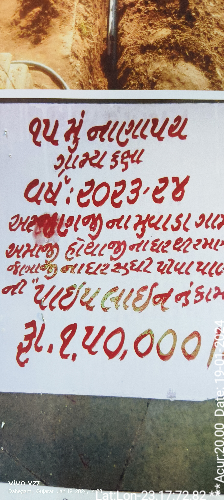 ૧૫ મું નાણાપચ
ગ્રામ્ય કક્ષા
વર્ષ:૨૦૨૩-૨૪
ના મુવાડા ગામ
અમાજી હોથાજી ના ઘર થી રમા
ના ઘર સુધી પીવા પા
ની "પાઈપ લાઈન નું કામ
રૂા.૧,૫૦,૦૦૦/
vivo Y27
Lat Lon 23.17 72.82
Acur:20.00 Date: 19-01-2024